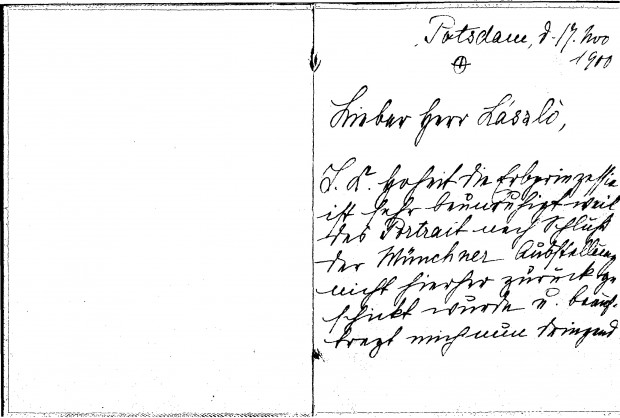 Potsdam, d. 17. Nov
1900
Lieber Herr László,
I. K. Hoheit die Erbprinzessin
ist sehr beunruhigt weil
das Portrait nach Schluß
der Münchner Ausstellung
nicht hierher zurück ge-
schickt wurde u. beauf-
tragt mich nun dringend